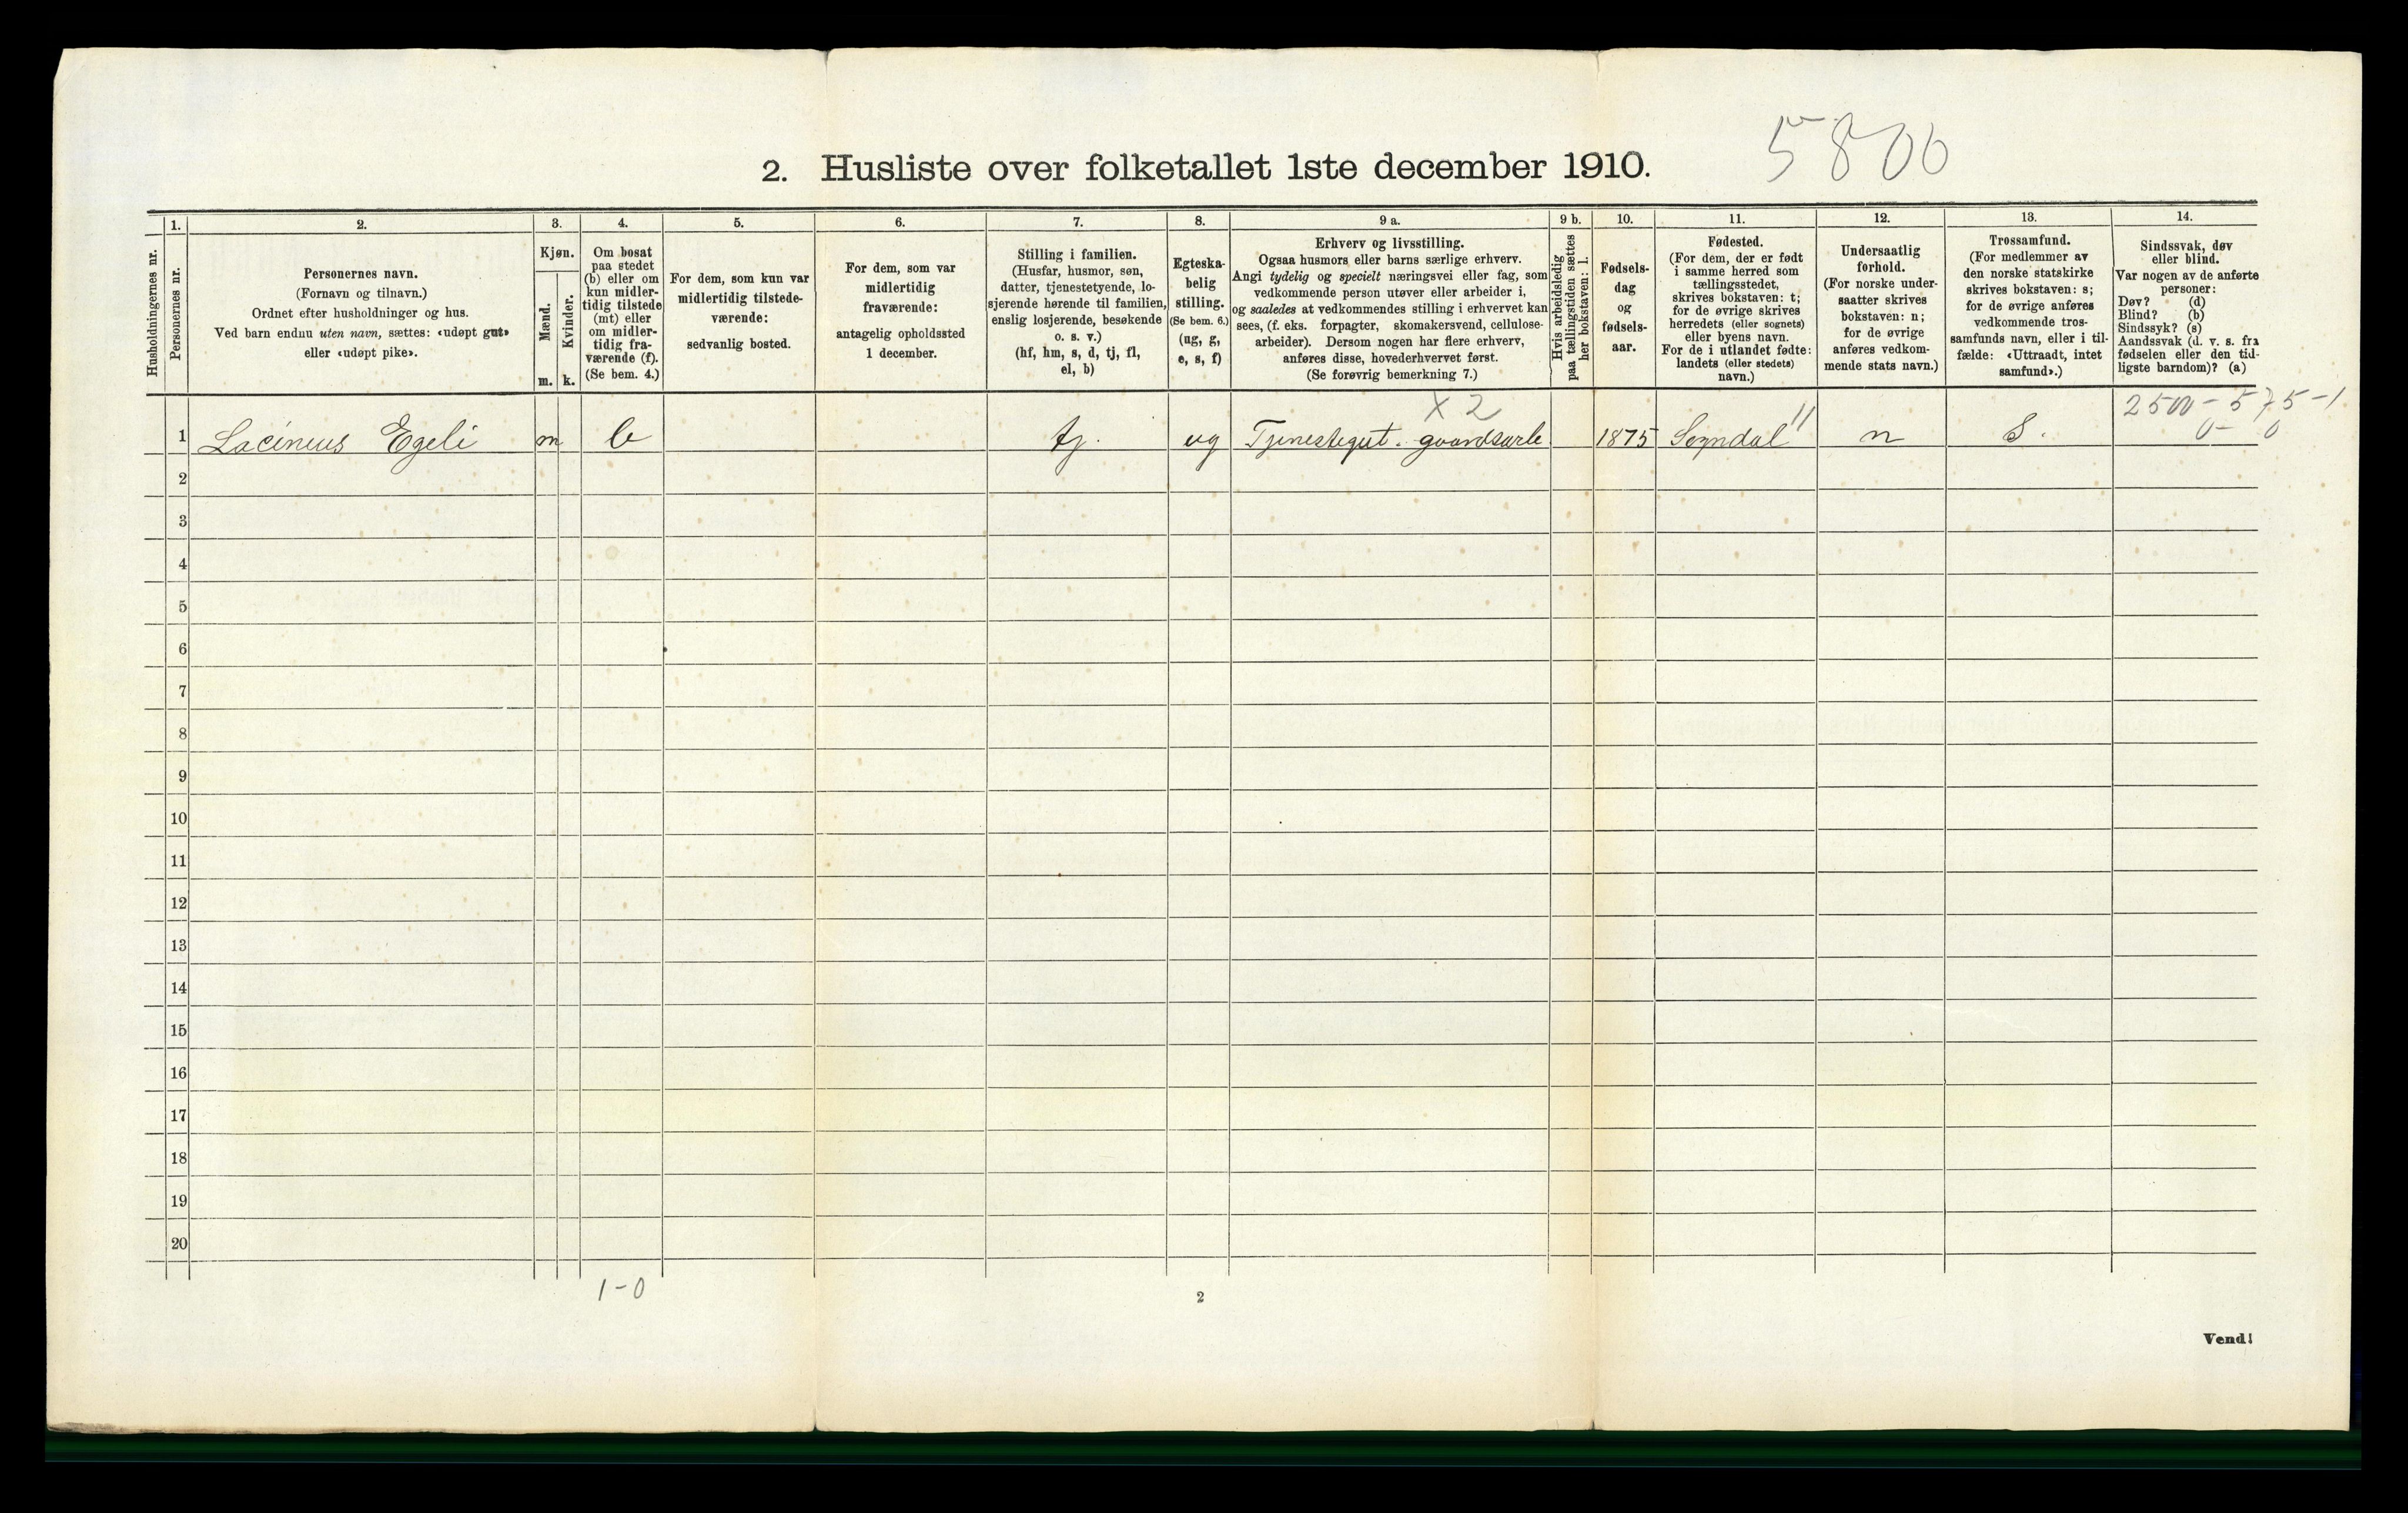 5800
2. Husliste over folketallet 1ste december 1910.
Husholdningernes nr.
1.
Personernes nr.
2.
Personernes navn.
(Fornavn og tilnavn.)
Ordnet efter husholdninger og hus.
Ved barn endnu uten navn, sættes: «udøpt gut»
eller «udøpt pike».
3.
Kjøn.
Mænd.
Kvinder.
m. k.
4.
Om bosat
paa stedet
(b) eller om
kun midler-
tidig tilstede
(mt) eller
om midler-
tidig fra-
værende (f).
(Se bem. 4.)
5.
For dem, som kun var
midlertidig tilstede-
værende:
sedvanlig bosted.
6.
For dem, som var
midlertidig
fraværende:
antagelig opholdssted
1 december.
7.
Stilling i familien.
(Husfar, husmor, søn,
datter, tjenestetyende, lo-
sjerende hørende til familien,
enslig losjerende, besøkende
o. s. v.)
(hf, hm, s, d, tj, fl,
el, b)
8.
Egteska-
belig
stilling.
(Se bem. 6.)
(ug, g,
e, s, f)
9 a.
Erhverv og livsstilling.
Ogsaa husmors eller barns særlige erhverv.
Angi tydelig og specielt næringsvei eller fag, som
vedkommende person utøver eller arbeider i,
og saaledes at vedkommendes stilling i erhvervet kan
sees, (f. eks. forpagter, skomakersvend, cellulose-
arbeider). Dersom nogen har flere erhverv,
anføres disse, hovederhvervet først.
(Se forøvrig bemerkning 7.)
9 b.
Hvis arbeidsledig
paa tællingstiden sættes
her bokstaven: l.
10.
Fødsels-
dag
og
fødsels-
aar.
11.
Fødested.
(For dem, der er født
i samme herred som
tællingsstedet,
skrives bokstaven: t;
for de øvrige skrives
herredets (eller sognets)
eller byens navn.
For de i utlandet fødte:
landets (eller stedets)
navn.)
12.
Undersaatlig
forhold.
(For norske under-
saatter skrives
bokstaven: n;
for de øvrige
anføres vedkom-
mende stats navn.)
13.
Trossamfund.
(For medlemmer av
den norske statskirke
skrives bokstaven: s;
for de øvrige anføres
vedkommende tros-
samfunds navn, eller i til-
fælde: «Uttraadt, intet
samfund».)
14.
Sindssvak, døv
eller blind.
Var nogen av de anførte
personer:
Døv? (d)
Blind? (b)
Sindssyk? (s)
Aandssvak (d. v. s. fra
fødselen eller den tid-
ligste barndom)? (a)
x 2
11
2500 - 575 - 1
0 - 0
1 Lacineus Egeli m b tj. ug Tjenestegut. gaardsarb 1875 Sogndal n S.
2
3
4
5
6
7
8
9
10
11
12
13
14
15
16
17
18
19
20
1 - 0
2
Vend!